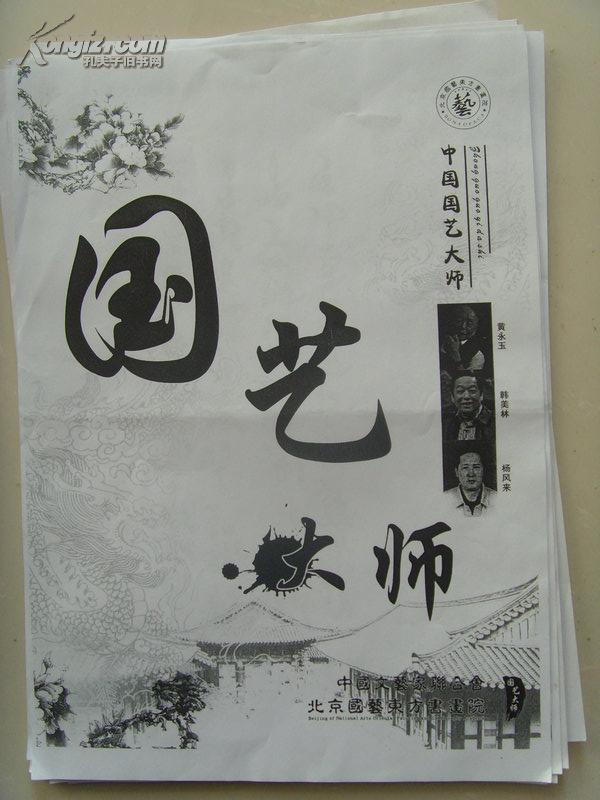 Kongfz.com
孔夫子旧书网
藝
中国国艺大师
Zhongguoguoyidashi
国
艺
大师
黄永玉
韩美林
杨风来
中國文藝家聯合會
北京國藝東方書畫院
Beijing of National Arts Oriental
国艺大师